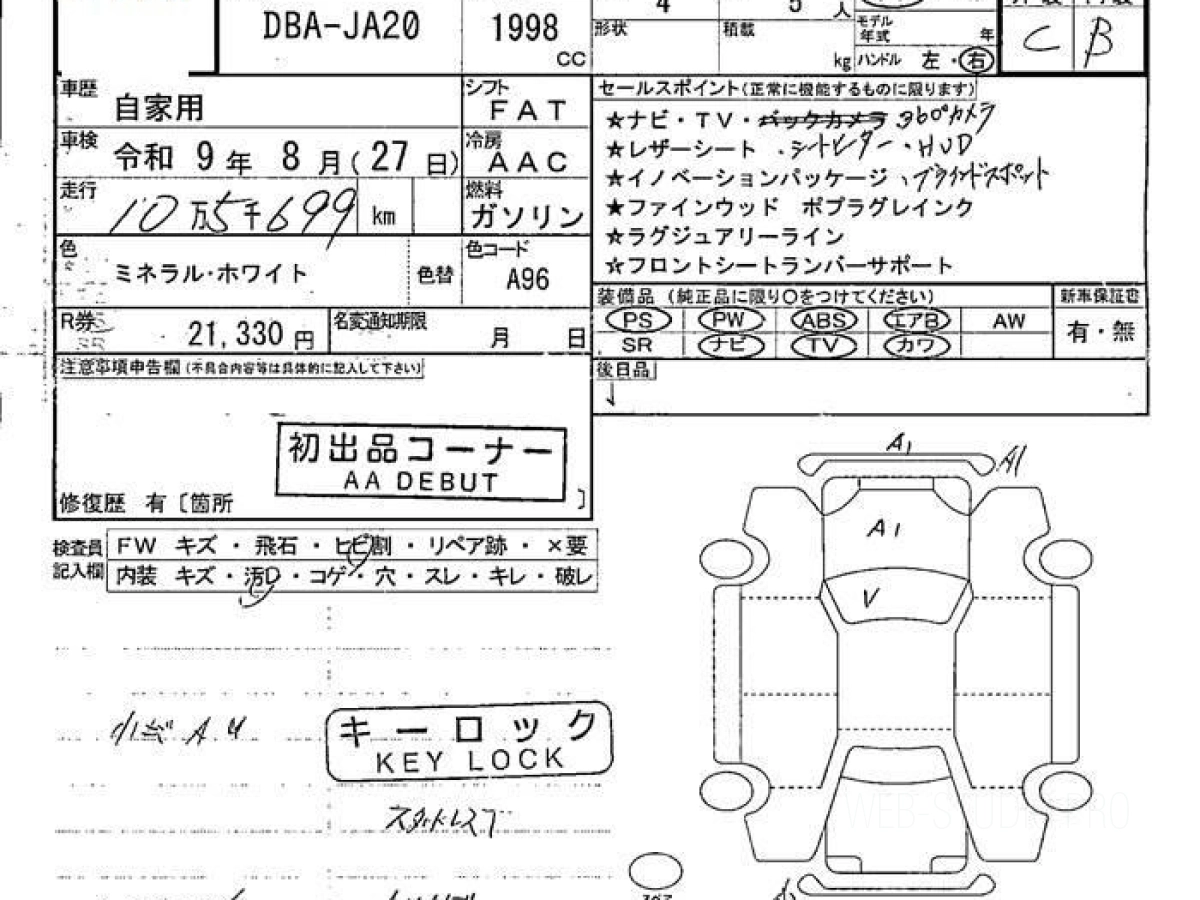 DBA-JA20
1998
CC
4
5
人
形状
積載
kg
モデル
年式
年
ハンドル 左・右
C
B
車歴
自家用
シフト
FAT
車検
令和 9 年 8 月(27日)
冷房
AAC
走行
10万5千699 km
燃料
ガソリン
色
ミネラル・ホワイト
色替
色コード
A96
R券
21,330 円
名変通知期限
月 日
注意事項申告欄(不具合内容等は具体的に記入して下さい)
初出品コーナー
AA DEBUT
修復歴 有〔箇所 〕
セールスポイント(正常に機能するものに限ります)
★ナビ・TV・バックカメラ 360°カメラ
★レザーシート ・シートヒーター・HUD
☆イノベーションパッケージ、ブラインドスポット
★ファインウッド ポプラグレインク
☆ラグジュアリーライン
☆フロントシートランバーサポート
装備品 (純正品に限り〇をつけてください)
新車保証書
PS PW ABS エアB AW
SR ナビ TV カワ
有・無
後日品
検査員
記入欄
FW キズ・飛石・ヒビ割・リペア跡・×要
内装 キズ・汚D・コゲ・穴・スレ・キレ・破レ
キーロック
KEY LOCK
スタッドレス
A1
A1
A1
V
WEB-STUDIO.PRO